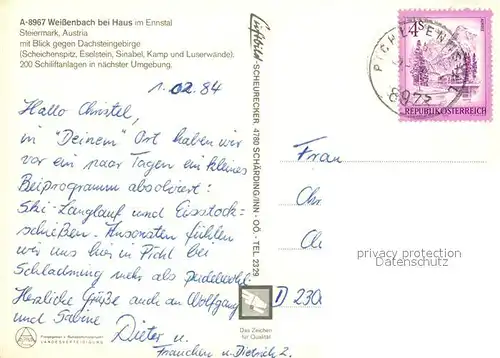 A-8967 Weißenbach bei Haus im Ennstal
Steiermark, Austria
mit Blick gegen Dachsteingebirge
(Scheichenspitz, Eselstein, Sinabel, Kamp und Luserwände).
200 Schiliftanlagen in nächster Umgebung.
1.02.84
Hallo Christel,
in "Deinem" Ort haben wir
vor ein paar Tagen ein kleines
Beiprogramm absolviert:
Ski-Langlauf und Eisstock=
schießen. Ansonsten fühlen
wir uns hier in Pichl bei
Schladming mehr als pudelwohl.
Herzliche Grüße auch an Wolfgang
und Sabine
Dieter u.
Frauchen u. Dietrich 2.
LANDESVERTEIDIGUNG
Luftbild - SCHEURECKER, 4780 SCHÄRDING/INN - OÖ. - TEL. 2329
Das Zeichen
für Qualität
S
4
REPUBLIK ÖSTERREICH
PICHL
ENNSTAL
8973
Frau
Chr
Cl
D 230
privacy protection
Ansichtskarten-Center